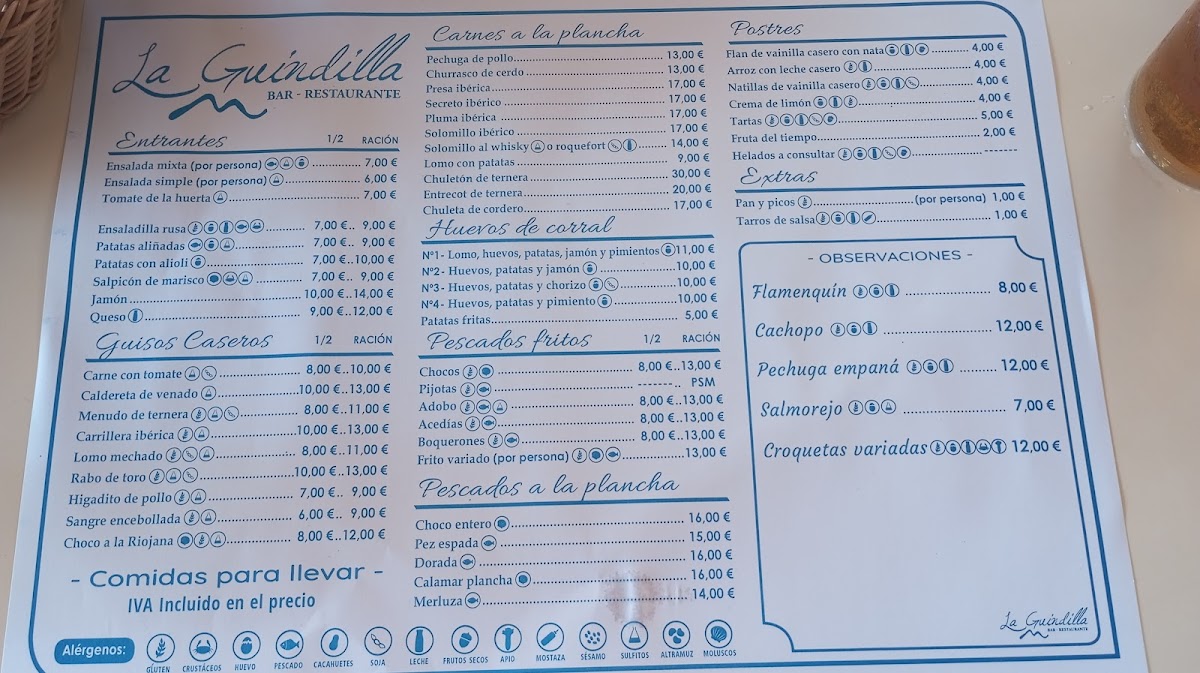 La Guindilla
BAR - RESTAURANTE
Entrantes 1/2 RACIÓN
Ensalada mixta (por persona) 7,00 €
Ensalada simple (por persona) 6,00 €
Tomate de la huerta 7,00 €
Ensaladilla rusa 7,00 €.. 9,00 €
Patatas aliñadas 7,00 €.. 9,00 €
Patatas con alioli 7,00 €..10,00 €
Salpicón de marisco 7,00 €.. 9,00 €
Jamón 10,00 €..14,00 €
Queso 9,00 €..12,00 €
Guisos Caseros 1/2 RACIÓN
Carne con tomate 8,00 €..10,00 €
Caldereta de venado 10,00 €..13,00 €
Menudo de ternera 8,00 €..11,00 €
Carrillera ibérica 10,00 €..13,00 €
Lomo mechado 8,00 €..11,00 €
Rabo de toro 10,00 €..13,00 €
Higadito de pollo 7,00 €.. 9,00 €
Sangre encebollada 6,00 €.. 9,00 €
Choco a la Riojana 8,00 €..12,00 €
- Comidas para llevar -
IVA Incluido en el precio
Carnes a la plancha
Pechuga de pollo 13,00 €
Churrasco de cerdo 13,00 €
Presa ibérica 17,00 €
Secreto ibérico 17,00 €
Pluma ibérica 17,00 €
Solomillo ibérico 17,00 €
Solomillo al whisky o roquefort 14,00 €
Lomo con patatas 9,00 €
Chuletón de ternera 30,00 €
Entrecot de ternera 20,00 €
Chuleta de cordero 17,00 €
Huevos de corral
Nº1- Lomo, huevos, patatas, jamón y pimientos 11,00 €
Nº2- Huevos, patatas y jamón 10,00 €
Nº3- Huevos, patatas y chorizo 10,00 €
Nº4- Huevos, patatas y pimiento 10,00 €
Patatas fritas 5,00 €
Pescados fritos 1/2 RACIÓN
Chocos 8,00 €..13,00 €
Pijotas -------.. PSM
Adobo 8,00 €..13,00 €
Acedías 8,00 €..13,00 €
Boquerones 8,00 €..13,00 €
Frito variado (por persona) 13,00 €
Pescados a la plancha
Choco entero 16,00 €
Pez espada 15,00 €
Dorada 16,00 €
Calamar plancha 16,00 €
Merluza 14,00 €
Postres
Flan de vainilla casero con nata 4,00 €
Arroz con leche casero 4,00 €
Natillas de vainilla casero 4,00 €
Crema de limón 4,00 €
Tartas 5,00 €
Fruta del tiempo 2,00 €
Helados a consultar -------
Extras
Pan y picos (por persona) 1,00 €
Tarros de salsa 1,00 €
- OBSERVACIONES -
Flamenquín 8,00 €
Cachopo 12,00 €
Pechuga empaná 12,00 €
Salmorejo 7,00 €
Croquetas variadas 12,00 €
La Guindilla
BAR - RESTAURANTE
Alérgenos: GLUTEN CRUSTÁCEOS HUEVO PESCADO CACAHUETES SOJA LECHE FRUTOS SECOS APIO MOSTAZA SÉSAMO SULFITOS ALTRAMUZ MOLUSCOS